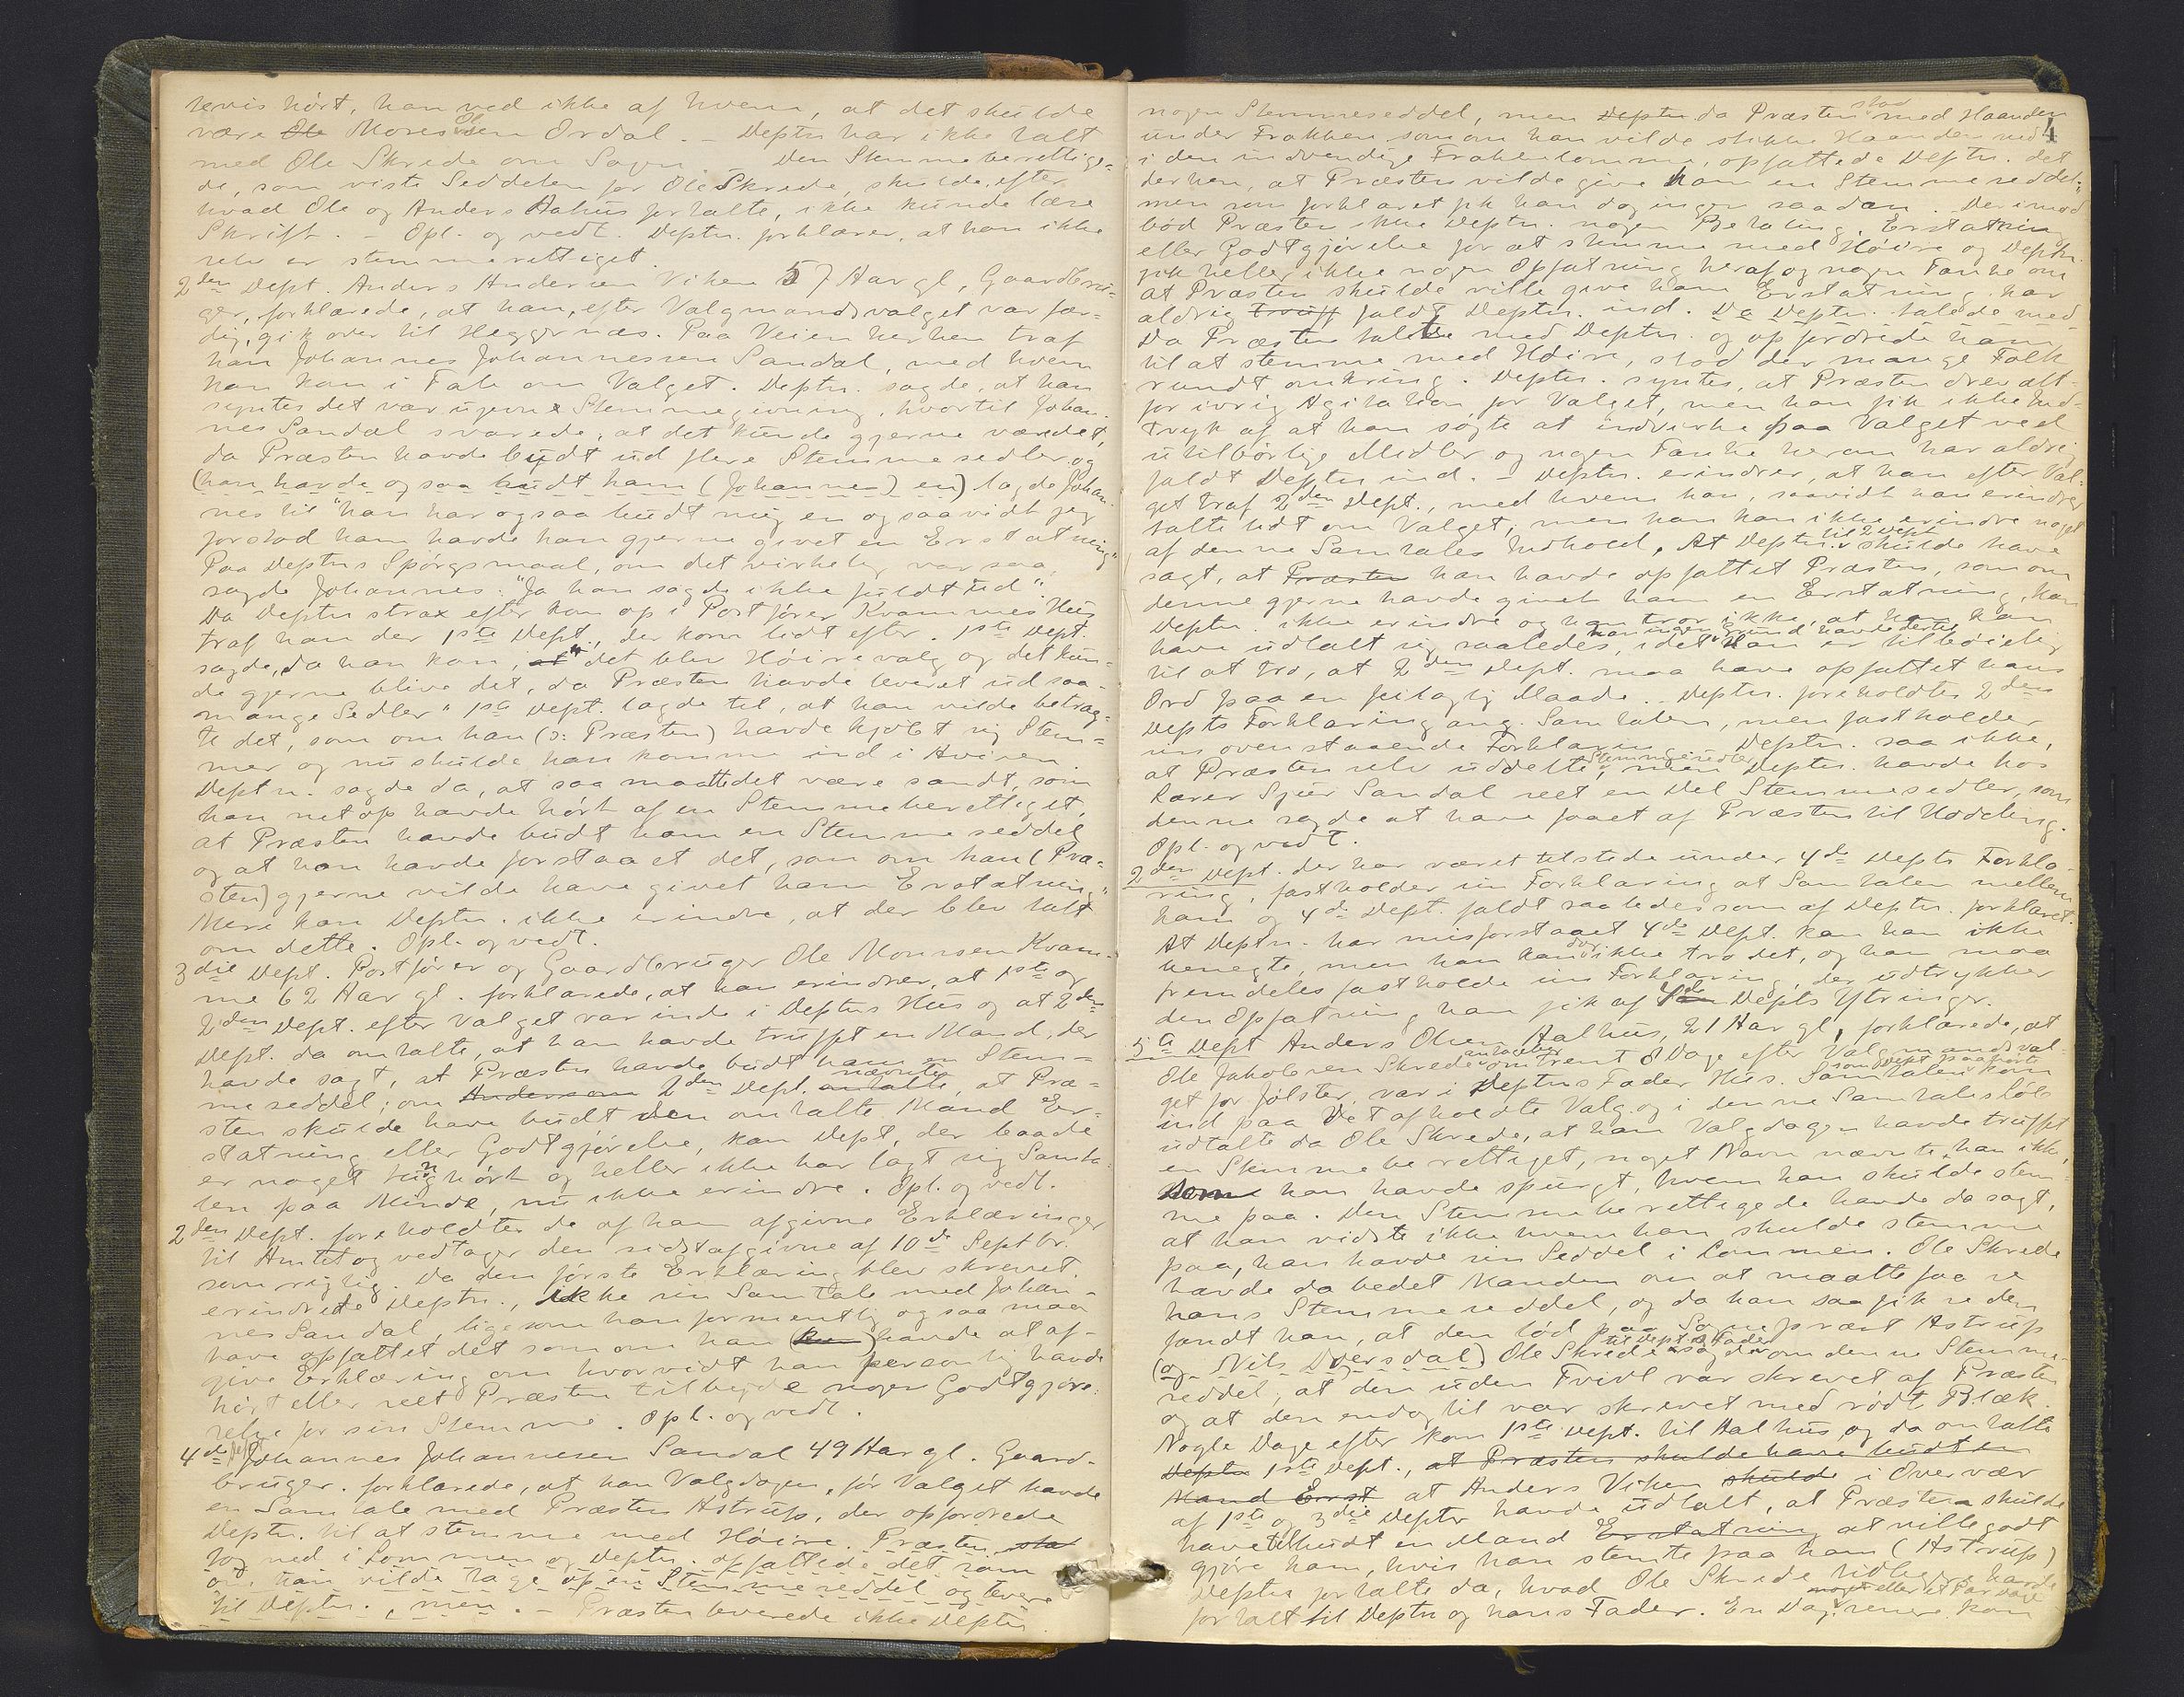 revis hört, han ved ikke af hvem, at det skulde
være Ole Mons Olsen Ordal. - Deptn har ikke talt
med Ole Skrede om Sagen. Den Stemmeberettige-
de, som viste Seddelen for Ole Skrede, skulde, efter
hvad Ole og Anders Aahus fortalte, ikke kunde læse
Skrift. - Opl. og vedt. Deptn. forklarer, at han ikke
selv er stemmerettiget.
2den Dept. Anders Andersen Viken 57 Aar gl, Gaardbru-
ger, forklarede, at han, efter Valgmandsvalget var fær-
dig, gik over til Heggenæs. Paa Veien herhen traf
han Johannes Johannessen Sandal, med hvem
han kom i Tale om Valget. Deptn. sagde, at han
syntes det var ujevn Stemmegivning, hvortil Johan-
nes Sandal svarede, at det kunde gjerne være det,
da Præsten havde budt ud flere Stemmesedler og
(han havde ogsaa budt ham (Johannes) en) lagde Johan-
nes til "han har ogsaa budt mig en og saavidt jeg
forstod ham havde han gjerne givet en Erstatning"
Paa Deptns Spörgsmaal, om det virkelig var saa,
sagde Johannes: "Ja han sagde ikke fuldt ud".
Da Deptn strax efter kom op i Postförer Kvammes Hus
traf han der 1ste Dept., der kom lidt efter. 1ste Dept.
sagde, da han kom, at "det blev Höirevalg og det kun-
de gjerne blive det, da Præsten havde leveret ud saa
mange Sedler" 1ste Dept. lagde til, at han vilde betrag-
te det, som om han (ɔ: Præsten) havde kjöbt sig Stem-
mer og nu skulde han komme ind i Avisen.
Deptn. sagde da, at saa maatte det være sandt, som
han netop havde hört af en Stemmeberettiget,
at Præsten havde budt ham en Stemmeseddel
og at han havde forstaaet det, som om han (Præ-
sten) gjerne vilde have givet ham Erstatning"
Mere kan Deptn. ikke erindre, at der blev talt
om dette. Opl. og vedt.
3die Dept. Postförer og Gaardbruger Ole Monssen Kvam-
me 62 Aar gl. forklarede, at han erindrer, at 1ste og
2den Dept. efter Valget var inde i Deptns Hus og at 2den
Dept. da omtalte, at han havde truffet en Mand, der
havde sagt, at Præsten havde budt ham en Stem-
meseddel; om Andersen 2den Dept. omtalte nævnte, at Præ-
sten skulde have budt den omtalte Mand Er-
statning eller Godtgjörelse, kan Dept, der baade
er noget tunghört og heller ikke har lagt sig Samta-
len paa Minde, nu ikke erindre. Opl. og vedt.
2den Dept. foreholdtes de af ham afgivne Erklæringer
til Amtet og vedtager den sidst afgivne af 10de Septbr.
som rigtig. Da den förste Erklæring blev skrevet,
erindrede Deptn., ikke sin Samtale med Johan-
nes Sandal, ligesom han formentlig ogsaa maa
have opfattet det som om han (kun) havde at af-
give Erklæring om hvorvidt han personlig havde
hört eller seet Præsten tilbyde nogen Godtgjöre-
relse for sin Stemme. Opl. og vedt.
4de Dept Johannes Johannesen Sandal 49 Aar gl. Gaard-
bruger. forklarede, at han Valgdagen, för Valget havde
en Samtale med Præsten Astrup, der opfordrede
Deptn. til at stemme med Höire. Præsten sto
tog ned i Lommen og Deptn. opfattede det som
om han vilde tage op en Stemmeseddel og levere
til Deptn., men. - Præsten leverede ikke Deptn
4
nogen Stemmeseddel, men Deptn da Præsten stod med Haanden
under Frakken som om han vilde stikke Haanden ned
i den indvendige Frakkelomme, opfattede Deptn. det
derhen, at Præsten vilde give ham en Stemmeseddel;
men som forklaret fik han dog ingen saadan. Derimod
bød Præsten ikke Deptn. nogen Betaling, Erstatning
eller Godtgjörelse for at stemme med Höire og Deptn.
fik heller ikke nogen Opfatning heraf og nogen Tanke om
at Præsten skulde ville give ham Erstatning har
aldrig truff faldt Deptn. ind. Da Deptn. talede med
Da Præsten talte med Deptn. og opfordrede ham
til at stemme med Höire, stod der mange Folk
rundt omkring. Deptn. syntes, at Præsten drev alt-
for ivrig Agitation for Valget, men han fik ikke Ind-
tryk af at han sögte at indvirke paa Valget ved
utilbörlige Midler og nogen Tanke herom har aldrig
faldt Deptn ind. - Deptn. erindrer, at han efter Val-
get traf 2den Dept., med hvem han, saavidt han erindrer
talte lidt om Valget, men han kan ikke erindre noget
af denne Samtales Indhold. At Deptn. til 2 Dept. skulde have
sagt, at Præsten han havde opfattet Præsten, som om
denne gjerne havde givet ham en Erstatning, kan
Deptn. ikke erindre og han tror ikke, at han kan
have udtalt sig saaledes, idet han ingen Grund havde dertil. Han er tilböielig
til at tro, at 2den Dept. maa have opfattet hans
Ord paa en feilagtig Maade. - Deptn. foreholdtes 2den
Depts Forklaring ang. Samtalen, men fastholder
sin ovenstaaende Forklaring. Deptn. saa ikke,
at Præsten selv uddelte Stemmesedler, men Deptn. havde hos
Lærer Sjur Sandal seet en Del Stemmesedler, som
denne sagde at have faaet af Præsten til Uddeling.
Opl. og vedt.
2den Dept. der har været tilstede under 4de Depts Forkla-
ring, fastholder sin Forklaring at Samtalen mellem
ham og 4de Dept. faldt saaledes som af Deptn. forklaret.
At Deptn. har misforstaaet 4de Dept. kan han ikke
benegte, men han kan dog ikke tro det, og han maa
fremdeles fastholde sin Forklaring, der udtrykker
den Opfatning han fik af 4de Depts Ytringer.
5te Dept Anders Olsen Aalhus, 21 Aar gl, forklarede, at
Ole Jakobsen Skrede antagelig omtrent 8 Dage efter Valgmandsval-
get for Jölster, var i Deptns Fader Hus. Samtalen som Dept paahörte kom
ind paa det afholdte Valg og i denne Samtales Löb
udtalte da Ole Skrede, at han Valgdagen havde truffet
en Stemmeberettiget, noget Navn nævnte han ikke,
som han havde spurgt, hvem han skulde stem-
me paa. Den Stemmeberettigede havde da sagt,
at han vidste ikke hvem han skulde stemme
paa, han havde sin Seddel i Lommen. Ole Skrede
havde da bedet Manden om at maatte faa se
hans Stemmeseddel, og da han saa fik se den
fandt han, at den lød paa Sogneprest Astrup
(og Nils Dvergsdal). Ole Skrede sagde til Deptns Fader om denne Stemme-
seddel, at den uden Tvivl var skrevet af Præsten
og at den endog til var skrevet med rödt Blæk.
Nogle Dage efter kom 1ste Dept. til Aalhus og da omtalte
Deptn 1ste Dept., at Præsten skulde have budt en
Mand Erst at Anders Viken skulde i Overvær
af 1ste og 3die Deptn havde udtalt, at Præsten skulde
have tilbudt en Mand Erstatning at ville godt
gjöre ham, hvis han stemte paa ham (Astrup)
Deptn fortalte da, hvad Ole Skrede tidligere havde
fortalt til Deptn og hans Fader. En Dag noget eller et Par Dage senere kom